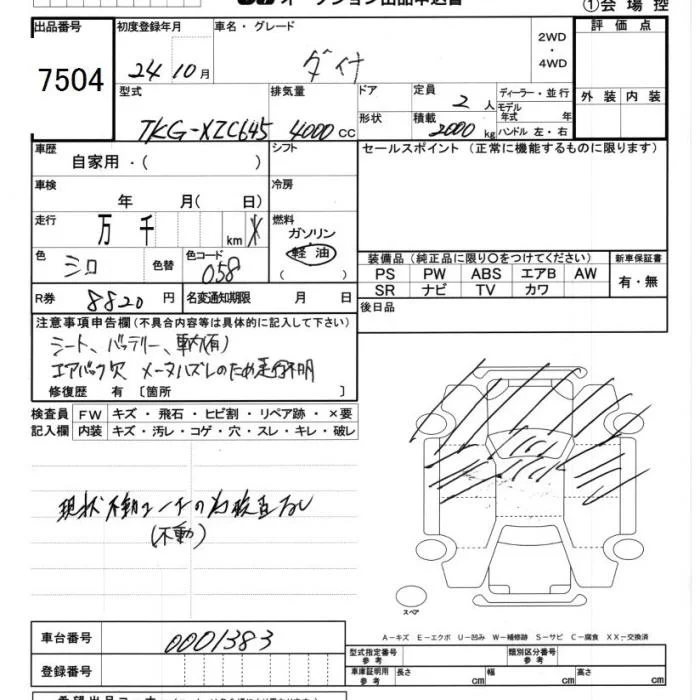 オークション出品申込書
①会場控
出品番号 初度登録年月 車名・グレード 2WD ・ 4WD 評価点
7504 24 10月 ダイナ
型式 排気量 ドア 定員 2人 ディーラー・並行 外装 内装
形状 積載 2000kg モデル年式 年
TKG-XZC645 4000cc ハンドル 左・右
車歴 シフト セールスポイント（正常に機能するものに限ります）
自家用・（ ）
車検 冷房
年 月（ 日）
走行 万 千 km 燃料
ガソリン
軽油
（ ）
色 シロ 色替 色コード 058
装備品（純正品に限り〇をつけてください） 新車保証書
PS PW ABS エアB AW 有・無
SR ナビ TV カワ
R券 8820円 名変通知期限 月 日 後日品
注意事項申告欄（不具合内容等は具体的に記入して下さい）
シート、バッテリー、車内(有)
エアバック欠 メーターハズレのため走行不明
修復歴 有〔箇所 〕
検査員 FW キズ・飛石・ヒビ割・リペア跡・×要
記入欄 内装 キズ・汚レ・コゲ・穴・スレ・キレ・破レ
現状不動
(不動)
スペア
A－キズ E－エクボ U－凹み W－補修跡 S－サビ C－腐食 XX－交換済
車台番号 0001383 型式指定番号 参考 類別区分番号 参考
登録番号 車庫証明用 参考 長さ cm 幅 cm 高さ cm
希望出品コーナー